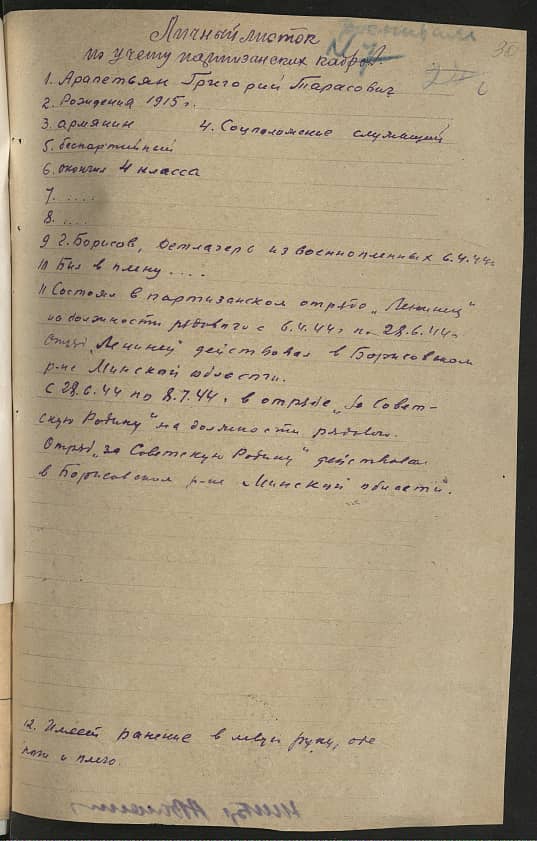 Личный листок
по учету партизанских кадров.
30
1. Арапетьян Григорий Тарасович
2. Рождения 1915 г.
3. армянин 4. Соцположение служащий
5. беспартийный
6. окончил 4 класса
7. ....
8. ....
9 г. Борисов, из военнопленных 6.4.44г
10 Был в плену ....
11 Состоял в партизанском отряде „Ленинец"
на должности рядового с 6.4.44г по 28.6.44г
Отряд „Ленинец" действовал в Борисовском
р-не Минской области.
С 28.6.44 по 8.7.44г. в отряде „За Совет-
скую Родину" на должности рядового.
Отряд „За Советскую Родину" действовал
в Борисовском р-не Минской области.
12. Имеет ранение в левую руку, обе
ноги и плечо.